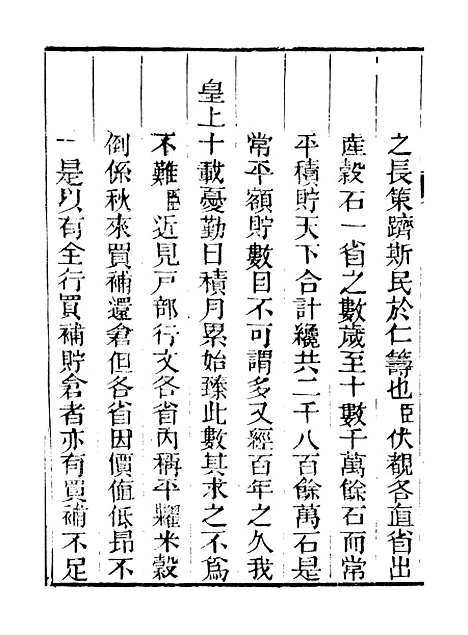 之長策躋斯民於仁籌也臣伏覩各直省出
產穀石一省之數歲至十數千萬餘石而常
平積貯天下合計纔共二千八百餘萬石是
常平額貯數目不可謂多又經百年之久我
皇上十載憂勤日積月累始臻此數其求之不爲
不難臣近見戸部行文各省內稱平糶米穀
倒係秋來買補還倉但各省因價値低昂不
一是以有全行買補貯倉者亦有買補不足